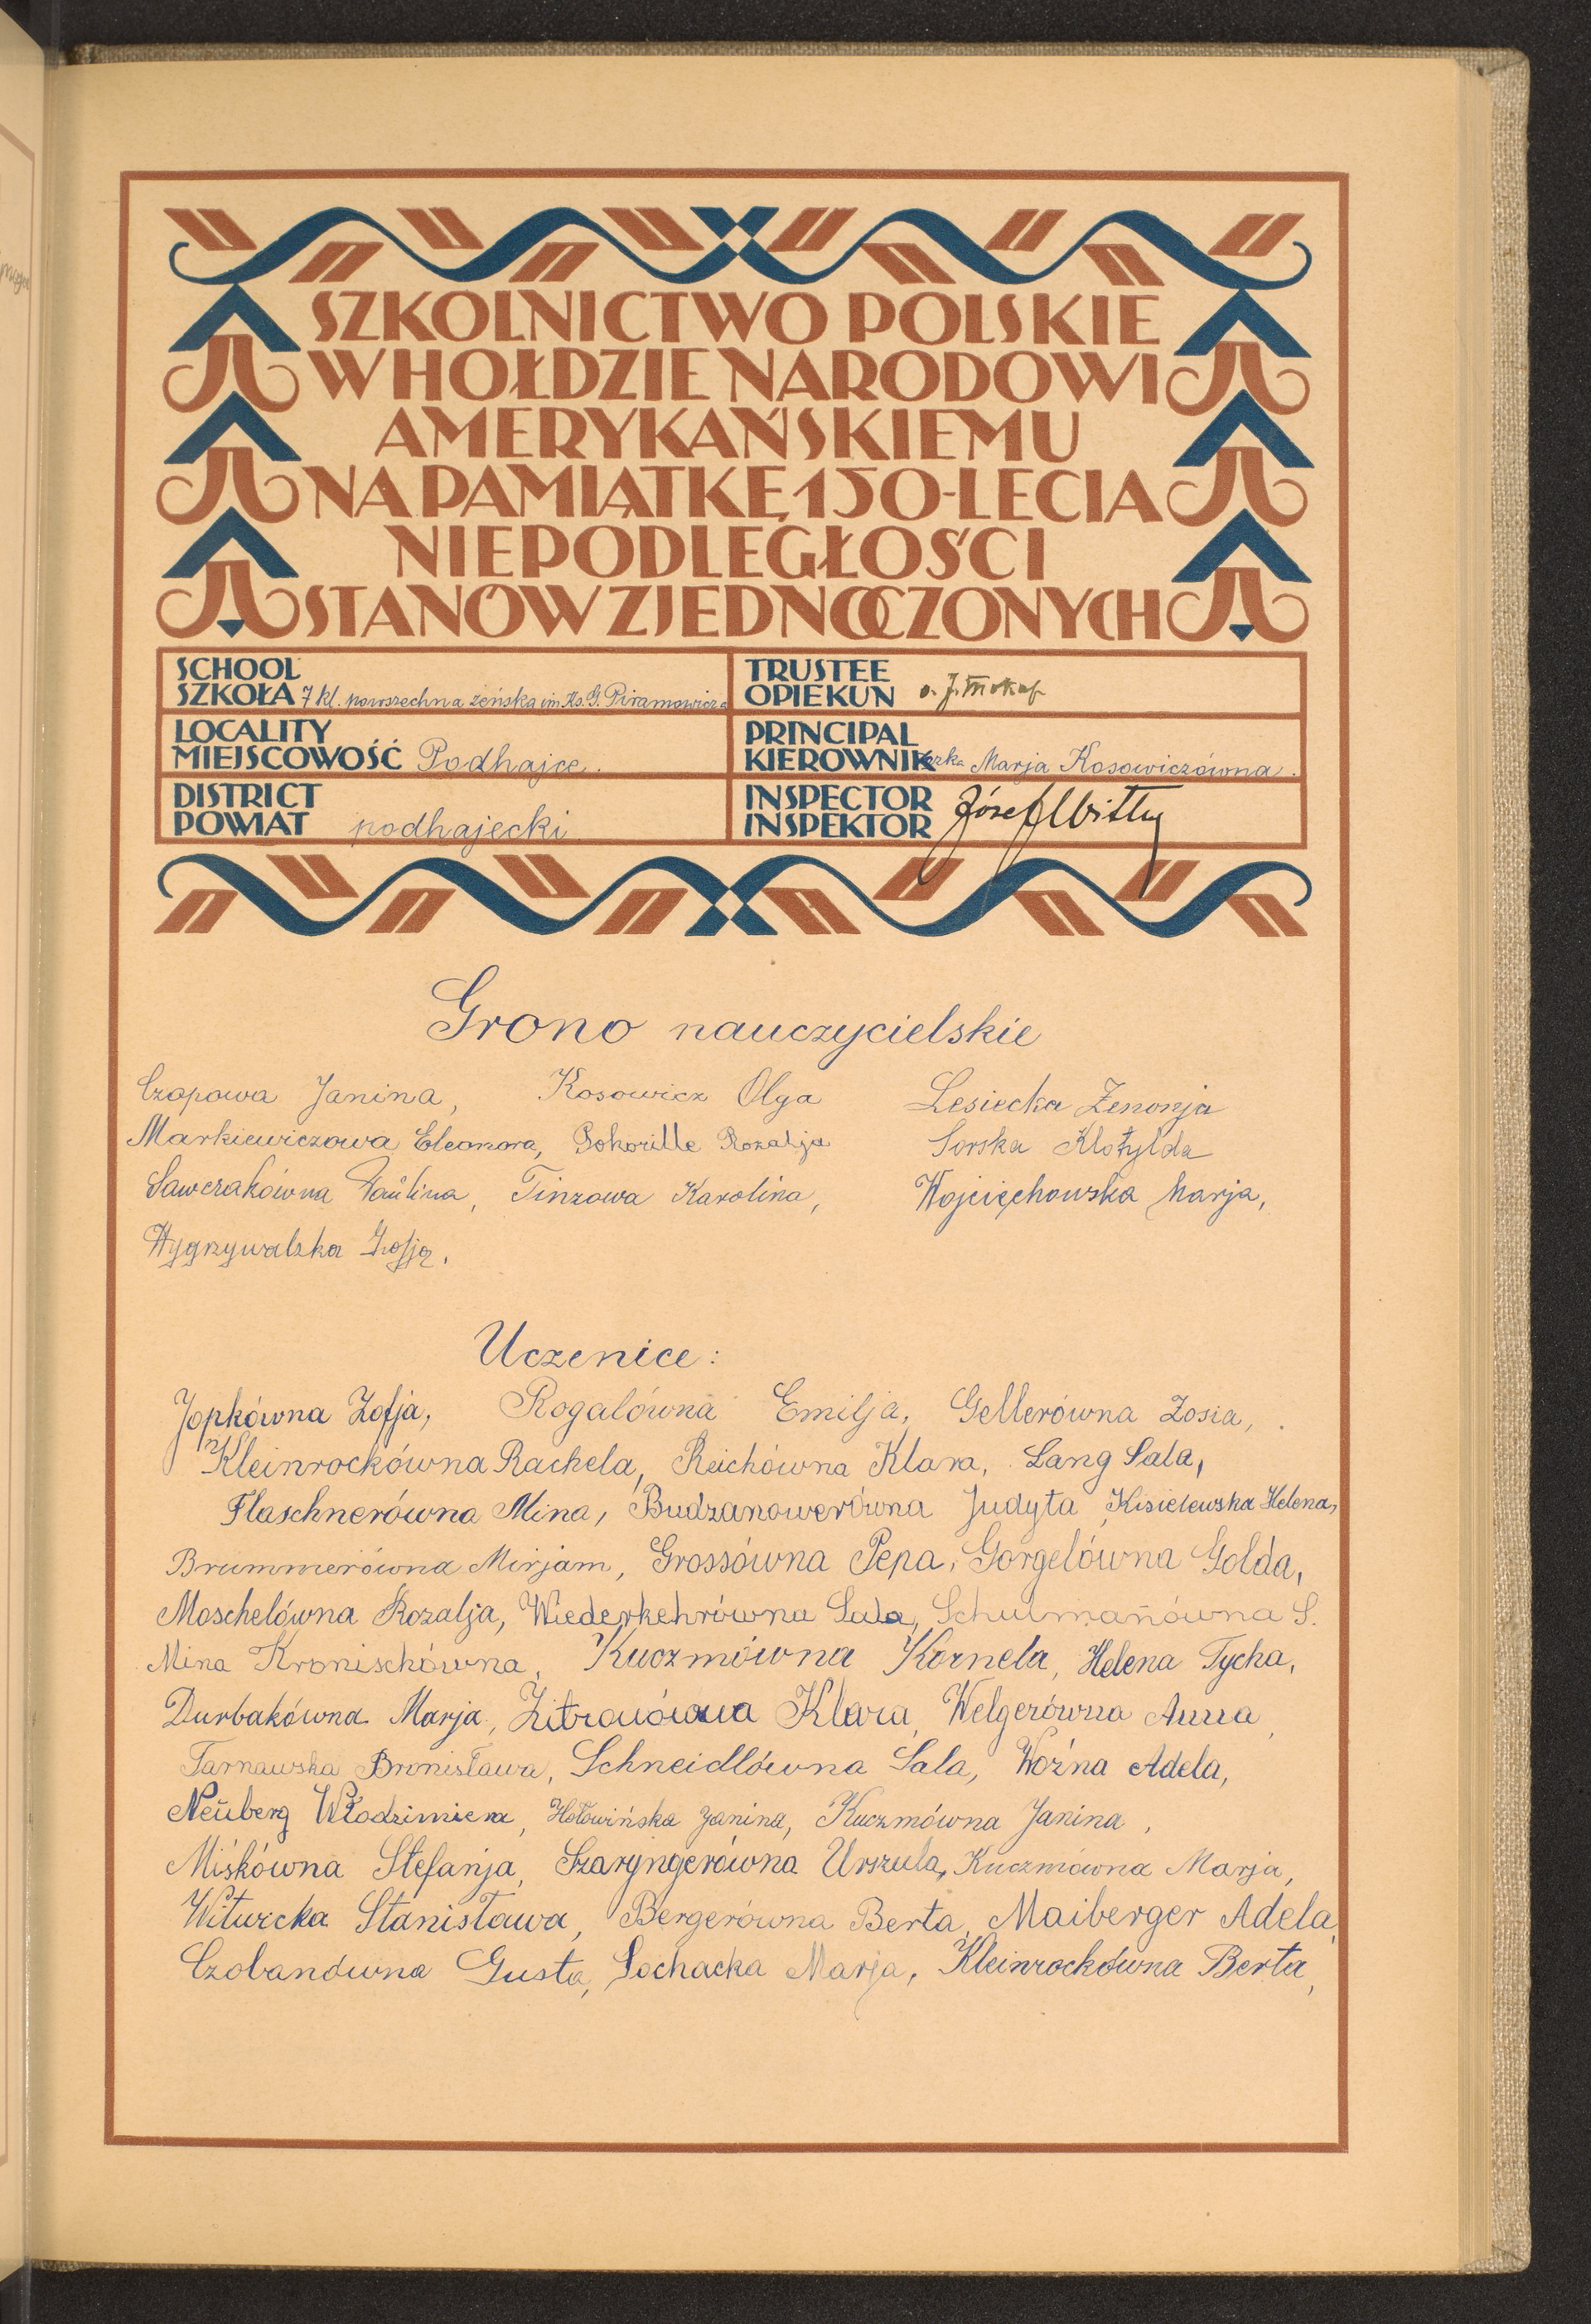 SZKOLNICTWO POLSKIE
W HOŁDZIE NARODOWI
AMERYKAŃSKIEMU
NA PAMIĄTKĘ 150-LECIA
NIEPODLEGŁOŚCI
STANÓW ZJEDNOCZONYCH
SCHOOL
SZKOŁA 7 kl. powszechna żeńska im. Ks. G. Piramowicza
TRUSTEE
OPIEKUN
LOCALITY
MIEJSCOWOŚĆ Podhajce.
PRINCIPAL
KIEROWNIczka Marja Kosowiczówna.
DISTRICT
POWIAT podhajecki
INSPECTOR
INSPEKTOR Józef Witty
Grono nauczycielskie
Czopowa Janina, Kosowicz Olga Lesiecka Zenonja
Markiewiczowa Eleonora, Pokorille Rozalja Sorska Klotylda
Sawczakówna Paulina, Tinzowa Karolina, Wojciechowska Marja,
Wygrzywalska Zofja.
Uczenice:
Jopkówna Zofja, Rogalówna Emilja, Gellerówna Zosia,
Kleinrockówna Rachela, Reichówna Klara, Lang Sala,
Flaschnerówna Mina, Budzanowerówna Judyta, Kisielewska Helena,
Brummerówna Mirjam, Grossówna Pepa, Gorgelówna Golda,
Moschelówna Rozalja, Wiederkehrówna Sala, Schulmanówna S.
Mina Kronischówna, Kuczmówna Kornela, Helena Tycha,
Durbakówna Marja, Zitronówna Klara, Welgerówna Anna,
Tarnawska Bronisława, Schneidlówna Sala, Woźna Adela,
Neuberg Włodzimiera, Hołowińska Janina, Kuczmówna Janina,
Miśkówna Stefanja, Szaryngerówna Urszula, Kuczmówna Marja,
Witwicka Stanisława, Bergerówna Berta, Maiberger Adela,
Czobanówna Gusta, Sochacka Marja, Kleinrockówna Berta,